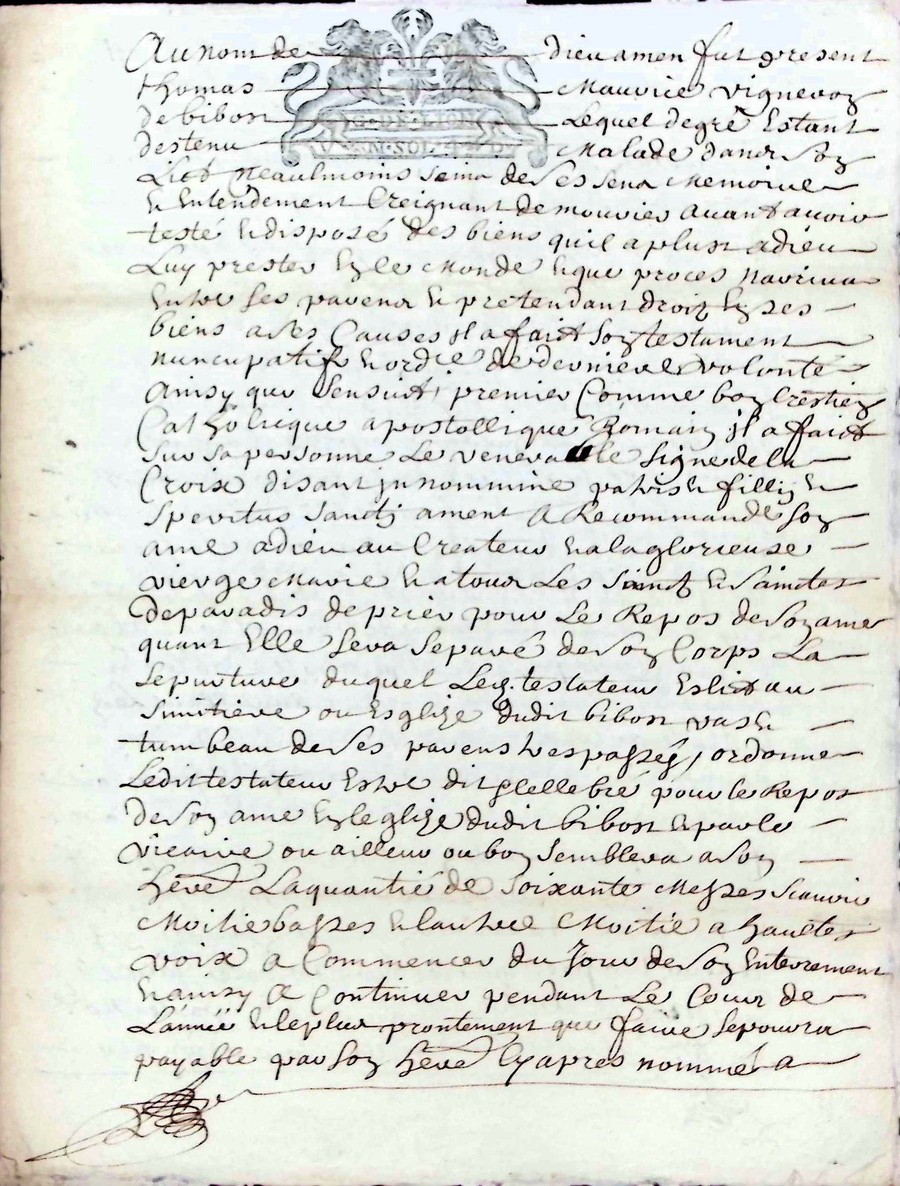 Au nom de dieu amen fut present
thomas Maurice vigneron
de bibost Lequel de gré Estant
G. DE. LION
destenu Malade dans son
M. SOL. 4 D
Lict neaulmoins sein de ses sens Memoire
et Entendement Creignant de mourier avant avoir
testé et disposé des biens quil a plust a dieu
Luy prester En le Monde et que proces narriva
Entre ses parens et pretendant droit En ses
biens a ses Causes il a faict son testament
nuncupatif et ordre de derniere volonté
Ainsy que sensuit, premier Comme bon Crestien
Catholicque apostollique Romain il a faict
sur sa personne Le venerable signe de la
Croix disant in nommine patris et fillij et
speritus sanctj ament A Recommandé son
ame a dieu au Createur et a la glorieuse
vierge Marie et a tous Les Sainct et Sainctes
de paradis de prier pour Le Repos de son ame
quant Elle sera separé de son Corps La
sepurture duquel Led. testateur Eslit au
Simitiere ou Esglize dudit bibost vas et
tumbeau de ses parens trespassés, ordonne
Ledit testateur Estre dit et cellebré pour le Repos
de son ame En leglize dudit bibost et par le
vicaire ou ailleur ou bon semblera a son
here Laquantié de soixante Messes scavoir
Moitie basses et lautre Moitié a haultes
voix a Commencer du Jour de son Enterrement
et ainsy A Continuer pendant Le Cour de
Lannée et le plus prontement que faire se pourra
payable par son here Cy apres nommé a